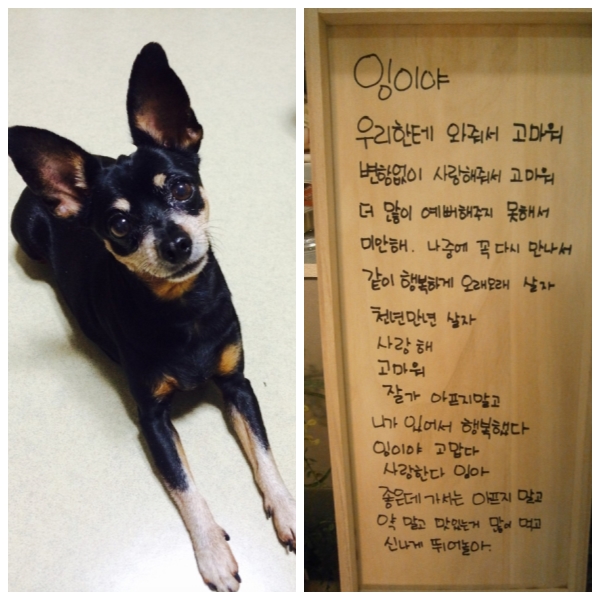 잉이야
우리한테 와줘서 고마워
변함없이 사랑해줘서 고마워
더 많이 예뻐해주지 못해서
미안해. 나중에 꼭 다시 만나서
같이 행복하게 오래오래 살자
천년만년 살자
사랑해
고마워
잘가 아프지말고
니가 있어서 행복했다
잉이야 고맙다
사랑한다 잉아
좋은데 가서는 아프지 말고
약 말고 맛있는거 많이 먹고
신나게 뛰어놀아.